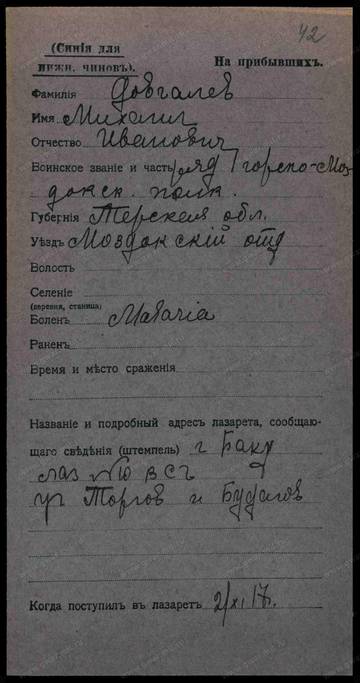 42
(Синія для
нижн. чиновъ).
На прибывшихъ.
Фамилія Довгалев
Имя Михаил
Отчество Иванович
Воинское званіе и часть ряд / горско-Моз-
докск. полк.
Губернія Терская обл.
Уѣздъ Моздокскій отд
Волость
Селеніе
(деревня, станица)
Боленъ Malaria
Раненъ
Время и мѣсто сраженія
Названіе и подробный адресъ лазарета, сообщаю-
щаго свѣдѣнія (штемпель) г Баку
лаз №10 ВСГ
уг Торгов и Будагов
Когда поступилъ въ лазаретъ 2/XI 17.